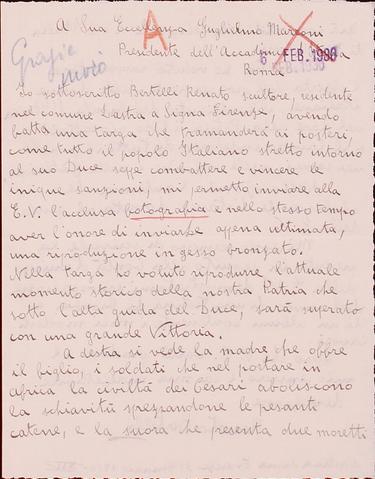 A Sua Eccellenza Guglielmo Marconi
A
Presidente dell'Accademia d'Italia
6 FEB. 1936
Roma
Grazie
Io sottoscritto Bertelli Renato scultore, residente
nel comune Lastra a Signa Firenze, avendo
fatta una targa che tramanderà ai posteri,
come tutto il popolo Italiano stretto intorno
al suo Duce seppe combattere e vincere le
inique sanzioni, mi permetto inviare alla
E.V. l'acclusa fotografia e nello stesso tempo
aver l'onore di inviarLe apena ultimata,
una riproduzione in gesso bronzato.
Nella targa ho voluto riprodurre l'attuale
momento storico della nostra Patria che
sotto l'alta guida del Duce, sarà superato
con una grande Vittoria.
A destra si vede la madre che offre
il figlio, i soldati che nel portare in
africa la civiltà dei Cesari aboliscono
la schiavitù spezzandone le pesanti
catene, e la suora che presenta due moretti